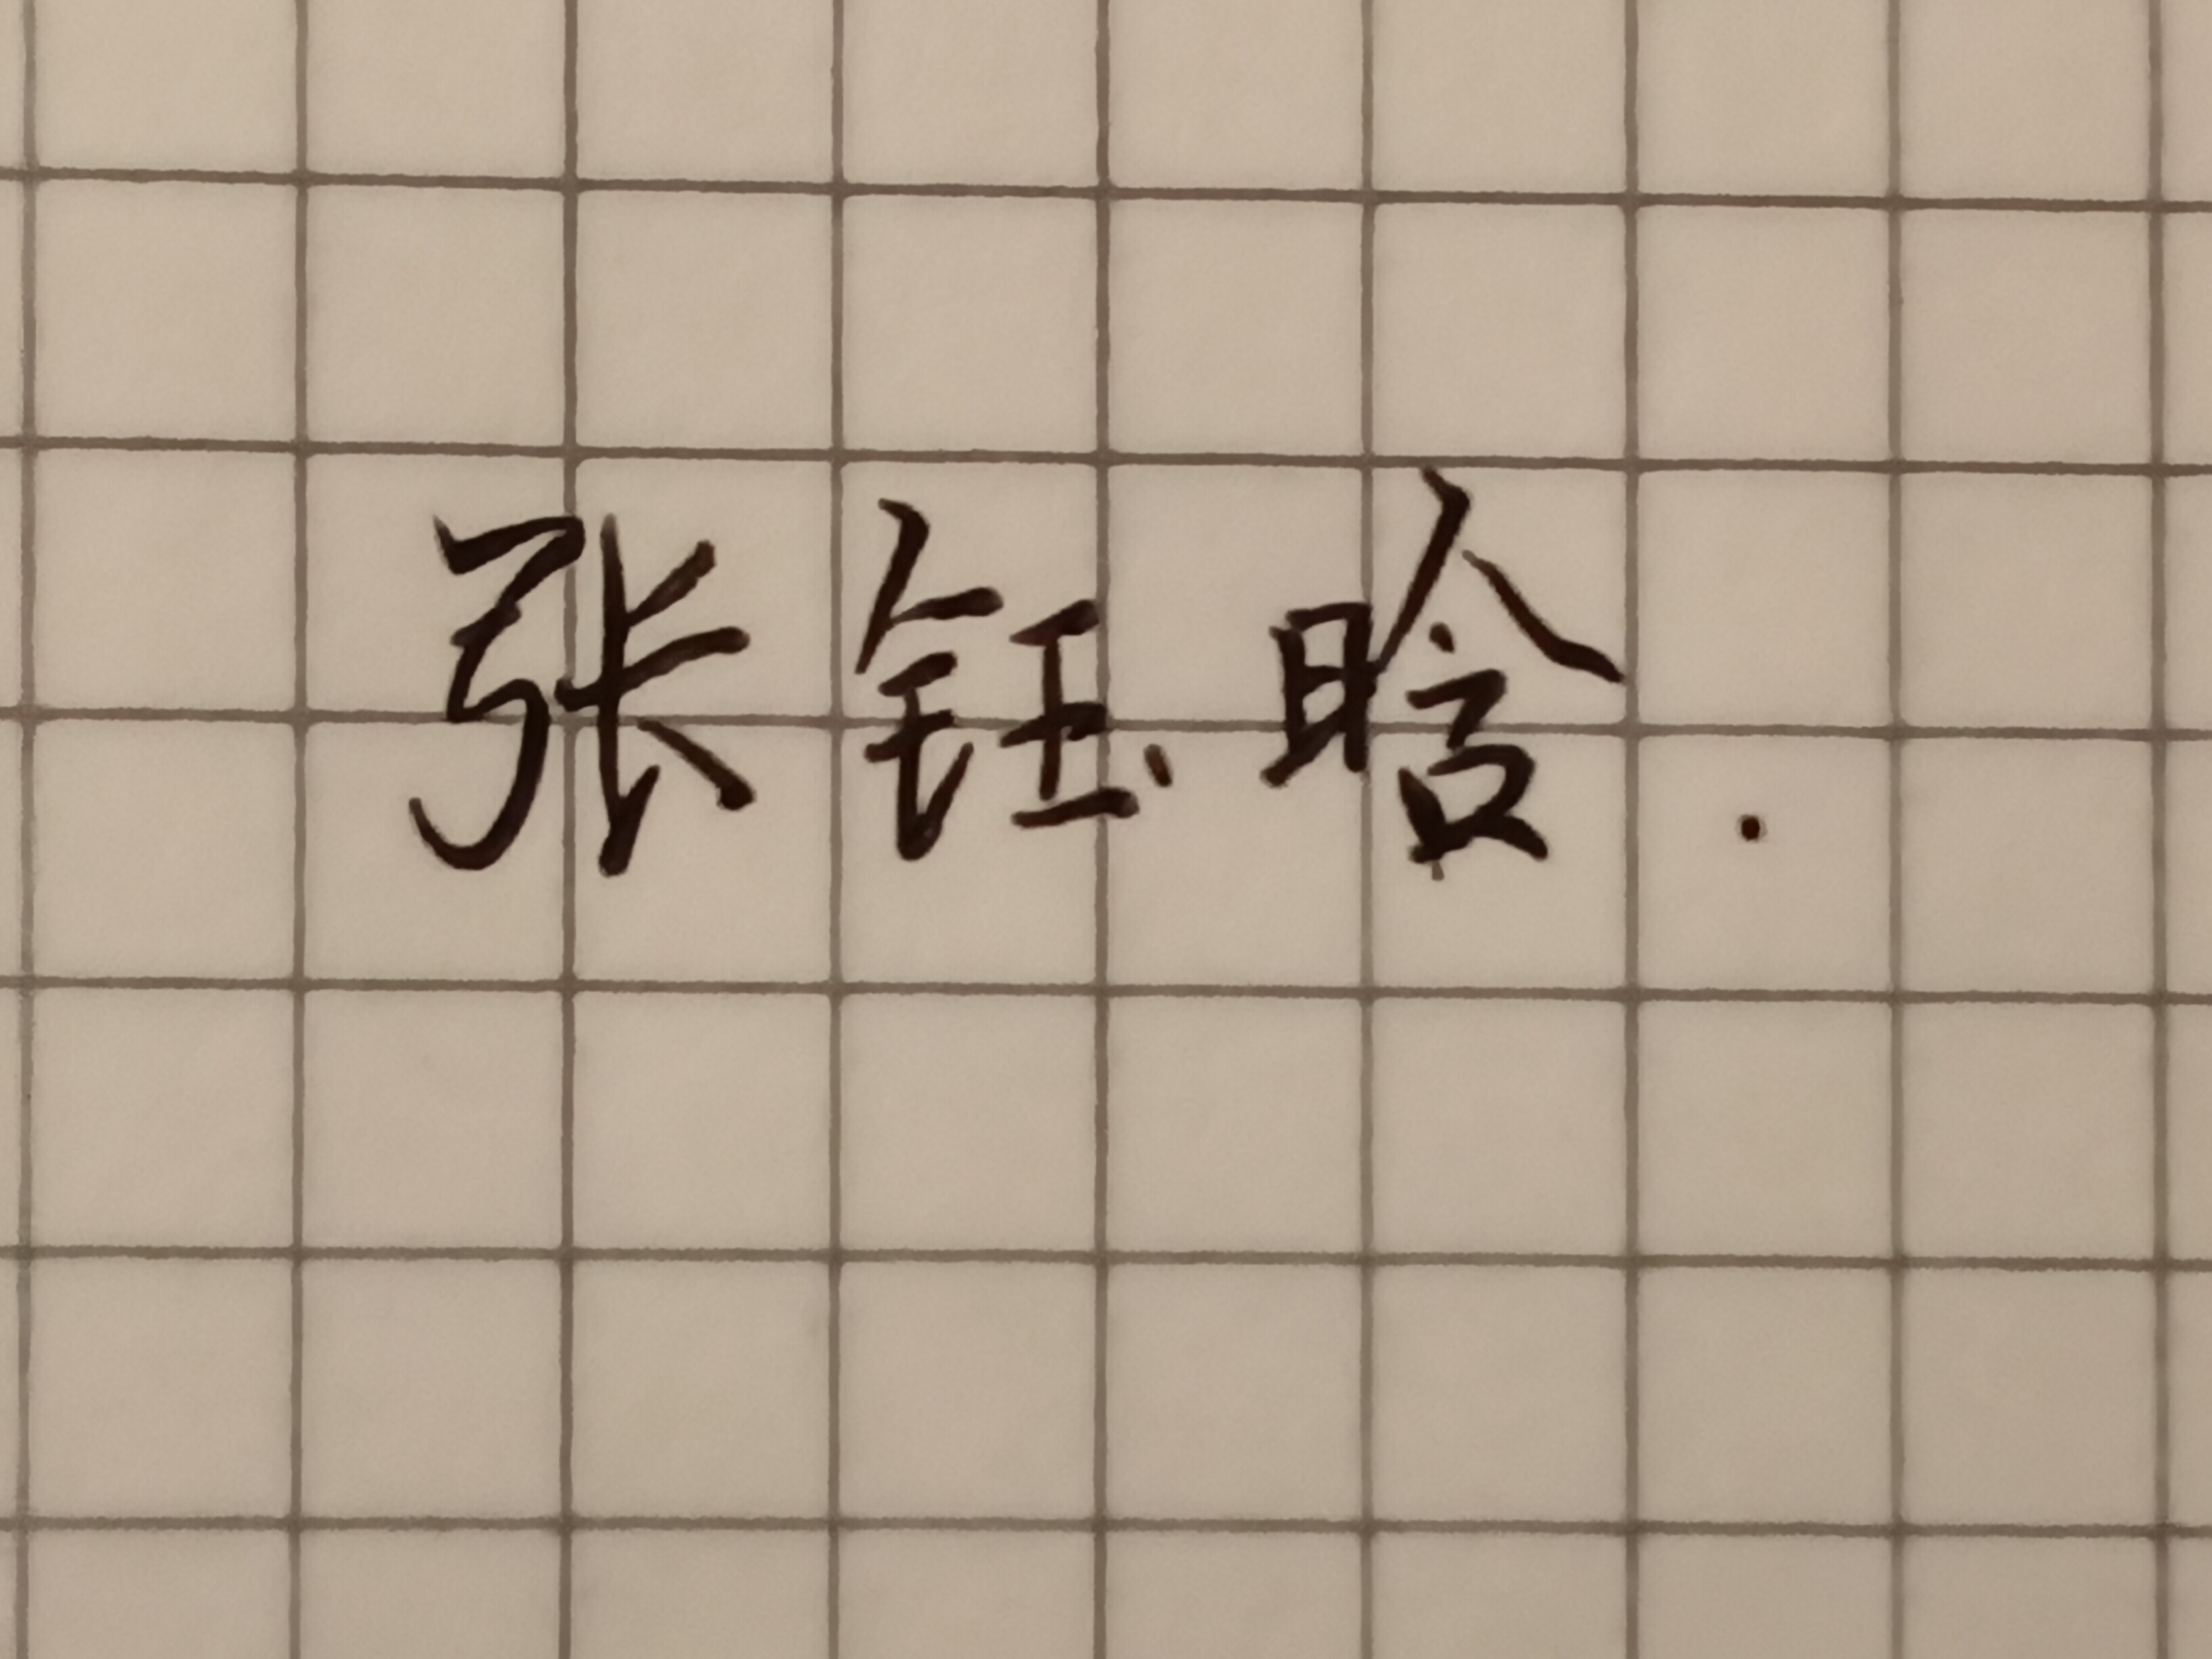 张钰晗.